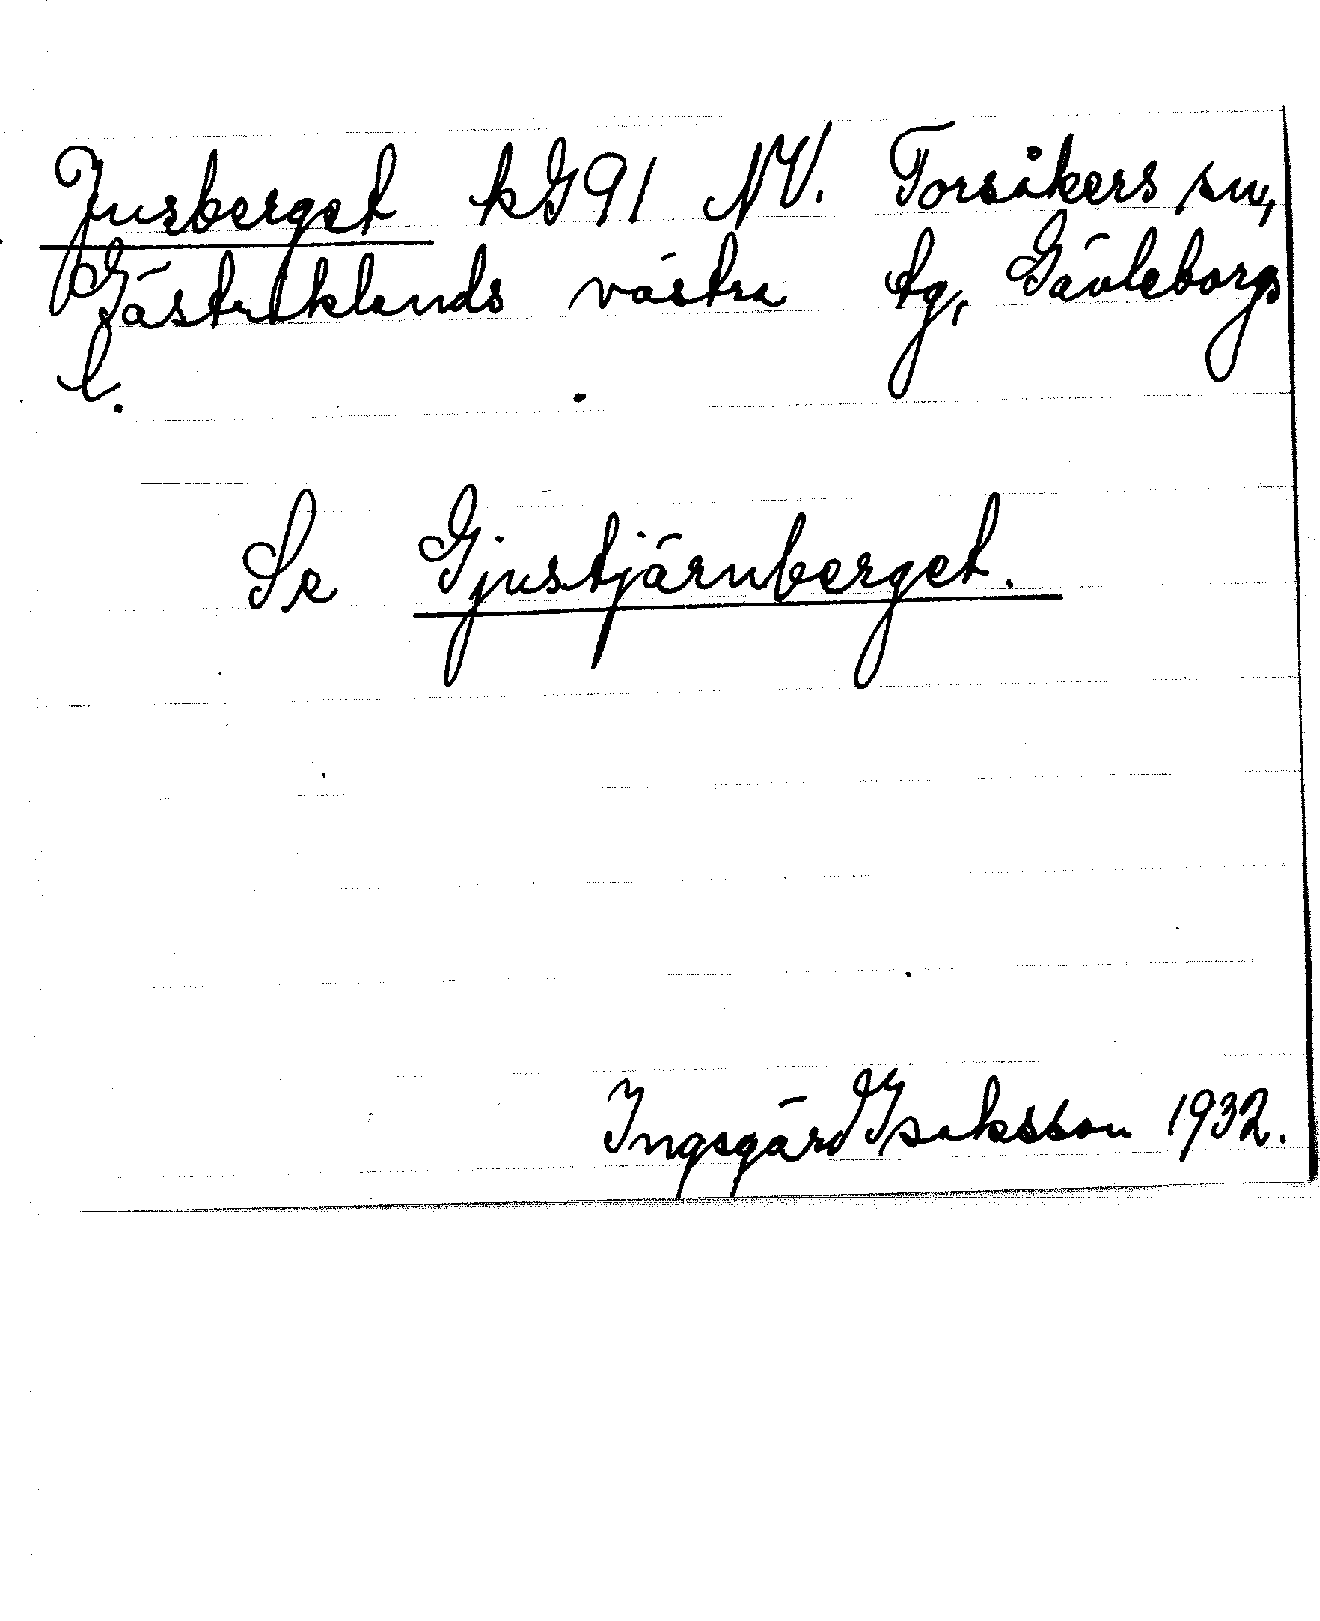 Jusberget kG91 NV. Torsåkers sn,
Gästriklands västra tg, Gävleborgs
l.
Se Gjustjärnberget.
Ingegärd Isaksson 1932.